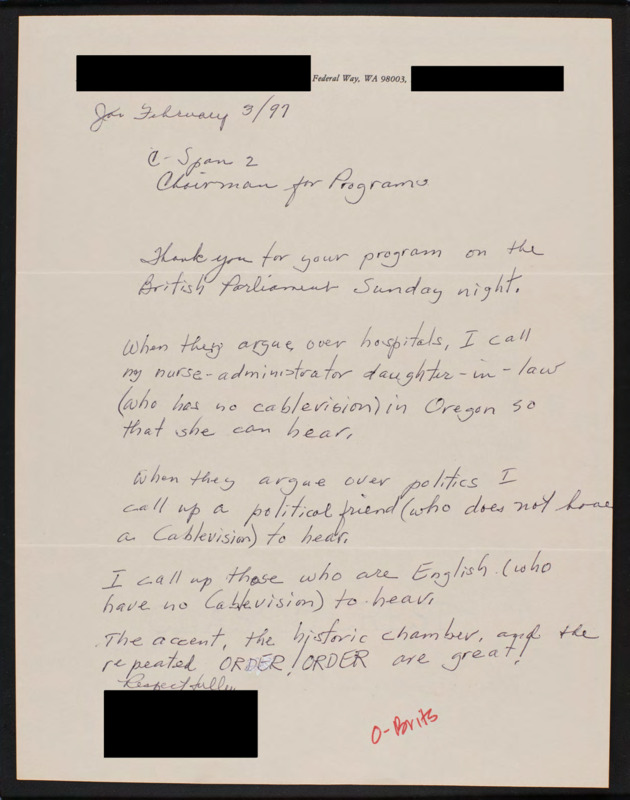 Federal Way, WA 98003,
Jan February 3/97
C-Span 2
Chairman for Programs
Thank you for your program on the
British Parliament Sunday night.
When they argue over hospitals, I call
my nurse-administrator daughter-in-law
(who has no cablevision) in Oregon so
that she can hear.
When they argue over politics I
call up a political friend (who does not have
a Cablevision) to hear.
I call up those who are English (who
have no Cablevision) to hear.
The accent, the historic chamber, and the
repeated ORDER! ORDER are great!
Respectfully
O-Brits